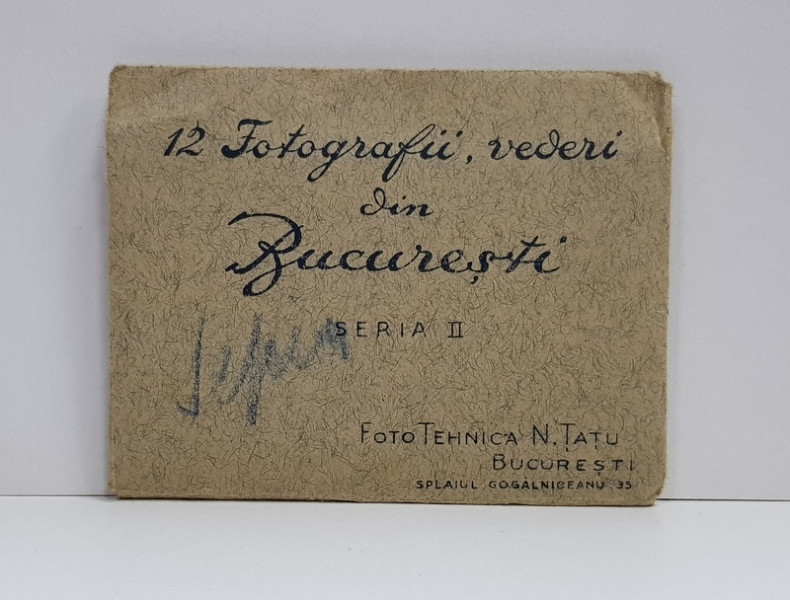 12 Fotografii, vederi
din
București
SERIA II
FOTO TEHNICA N. ȚATU
BUCUREȘTI
SPLAIUL COGĂLNICEANU 35